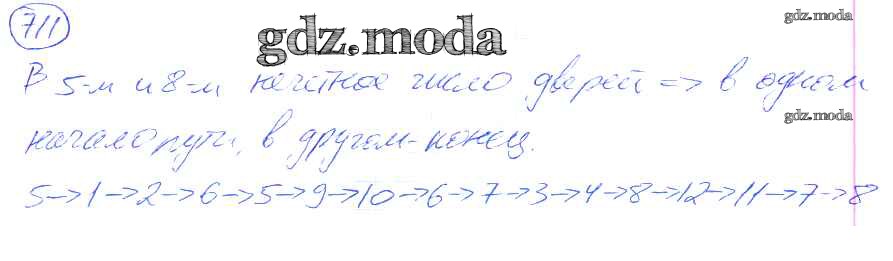 711
gdz.moda
gdz.moda
В 5-м и 8-м нечетное число дверей => в одном
gdz.moda
начало пути, в другом - конец.
5->1->2->6->5->9->10->6->7->3->4->8->12->11->7->8